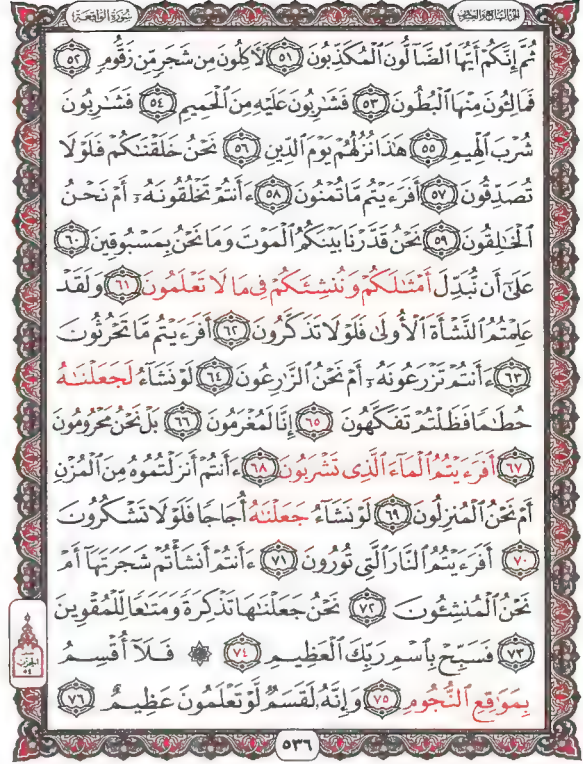 سُورَةُ الْوَاقِعَةِ
الجُزْءُ السَّابِعُ وَالعِشْرُونَ
ثُمَّ إِنَّكُمْ أَيُّهَا ٱلضَّآلُّونَ ٱلْمُكَذِّبُونَ ٥١ لَأَكِلُونَ مِن شَجَرٍ مِّن زَقُّومٍ ٥٢
فَمَالِـُٔونَ مِنْهَا ٱلْبُطُونَ ٥٣ فَشَـٰرِبُونَ عَلَيْهِ مِنَ ٱلْحَمِيمِ ٥٤ فَشَـٰرِبُونَ
شُرْبَ ٱلْهِيمِ ٥٥ هَـٰذَا نُزُلُهُمْ يَوْمَ ٱلدِّينِ ٥٦ نَحْنُ خَلَقْنَـٰكُمْ فَلَوْلَا
تُصَدِّقُونَ ٥٧ أَفَرَءَيْتُم مَّا تُمْنُونَ ٥٨ ءَأَنتُمْ تَخْلُقُونَهُۥٓ أَمْ نَحْنُ
ٱلْخَـٰلِقُونَ ٥٩ نَحْنُ قَدَّرْنَا بَيْنَكُمُ ٱلْمَوْتَ وَمَا نَحْنُ بِمَسْبُوقِينَ ٦٠
عَلَىٰٓ أَن نُّبَدِّلَ أَمْثَـٰلَكُمْ وَنُنشِئَكُمْ فِى مَا لَا تَعْلَمُونَ ٦١ وَلَقَدْ
عَلِمْتُمُ ٱلنَّشْأَةَ ٱلْأُولَىٰ فَلَوْلَا تَذَكَّرُونَ ٦٢ أَفَرَءَيْتُم مَّا تَحْرُثُونَ
٦٣ ءَأَنتُمْ تَزْرَعُونَهُۥٓ أَمْ نَحْنُ ٱلزَّٰرِعُونَ ٦٤ لَوْ نَشَآءُ لَجَعَلْنَـٰهُ
حُطَـٰمًا فَظَلْتُمْ تَفَكَّهُونَ ٦٥ إِنَّا لَمُغْرَمُونَ ٦٦ بَلْ نَحْنُ مَحْرُومُونَ
٦٧ أَفَرَءَيْتُمُ ٱلْمَآءَ ٱلَّذِى تَشْرَبُونَ ٦٨ ءَأَنتُمْ أَنزَلْتُمُوهُ مِنَ ٱلْمُزْنِ
أَمْ نَحْنُ ٱلْمُنزِلُونَ ٦٩ لَوْ نَشَآءُ جَعَلْنَـٰهُ أُجَاجًا فَلَوْلَا تَشْكُرُونَ
٧٠ أَفَرَءَيْتُمُ ٱلنَّارَ ٱلَّتِى تُورُونَ ٧١ ءَأَنتُمْ أَنشَأْتُمْ شَجَرَتَهَآ أَمْ
نَحْنُ ٱلْمُنشِـُٔونَ ٧٢ نَحْنُ جَعَلْنَـٰهَا تَذْكِرَةً وَمَتَـٰعًا لِّلْمُقْوِينَ
٧٣ فَسَبِّحْ بِٱسْمِ رَبِّكَ ٱلْعَظِيمِ ٧٤ ۞ فَلَآ أُقْسِمُ
بِمَوَٰقِعِ ٱلنُّجُومِ ٧٥ وَإِنَّهُۥ لَقَسَمٌ لَّوْ تَعْلَمُونَ عَظِيمٌ ٧٦
الحزب
٥٤
٥٣٦